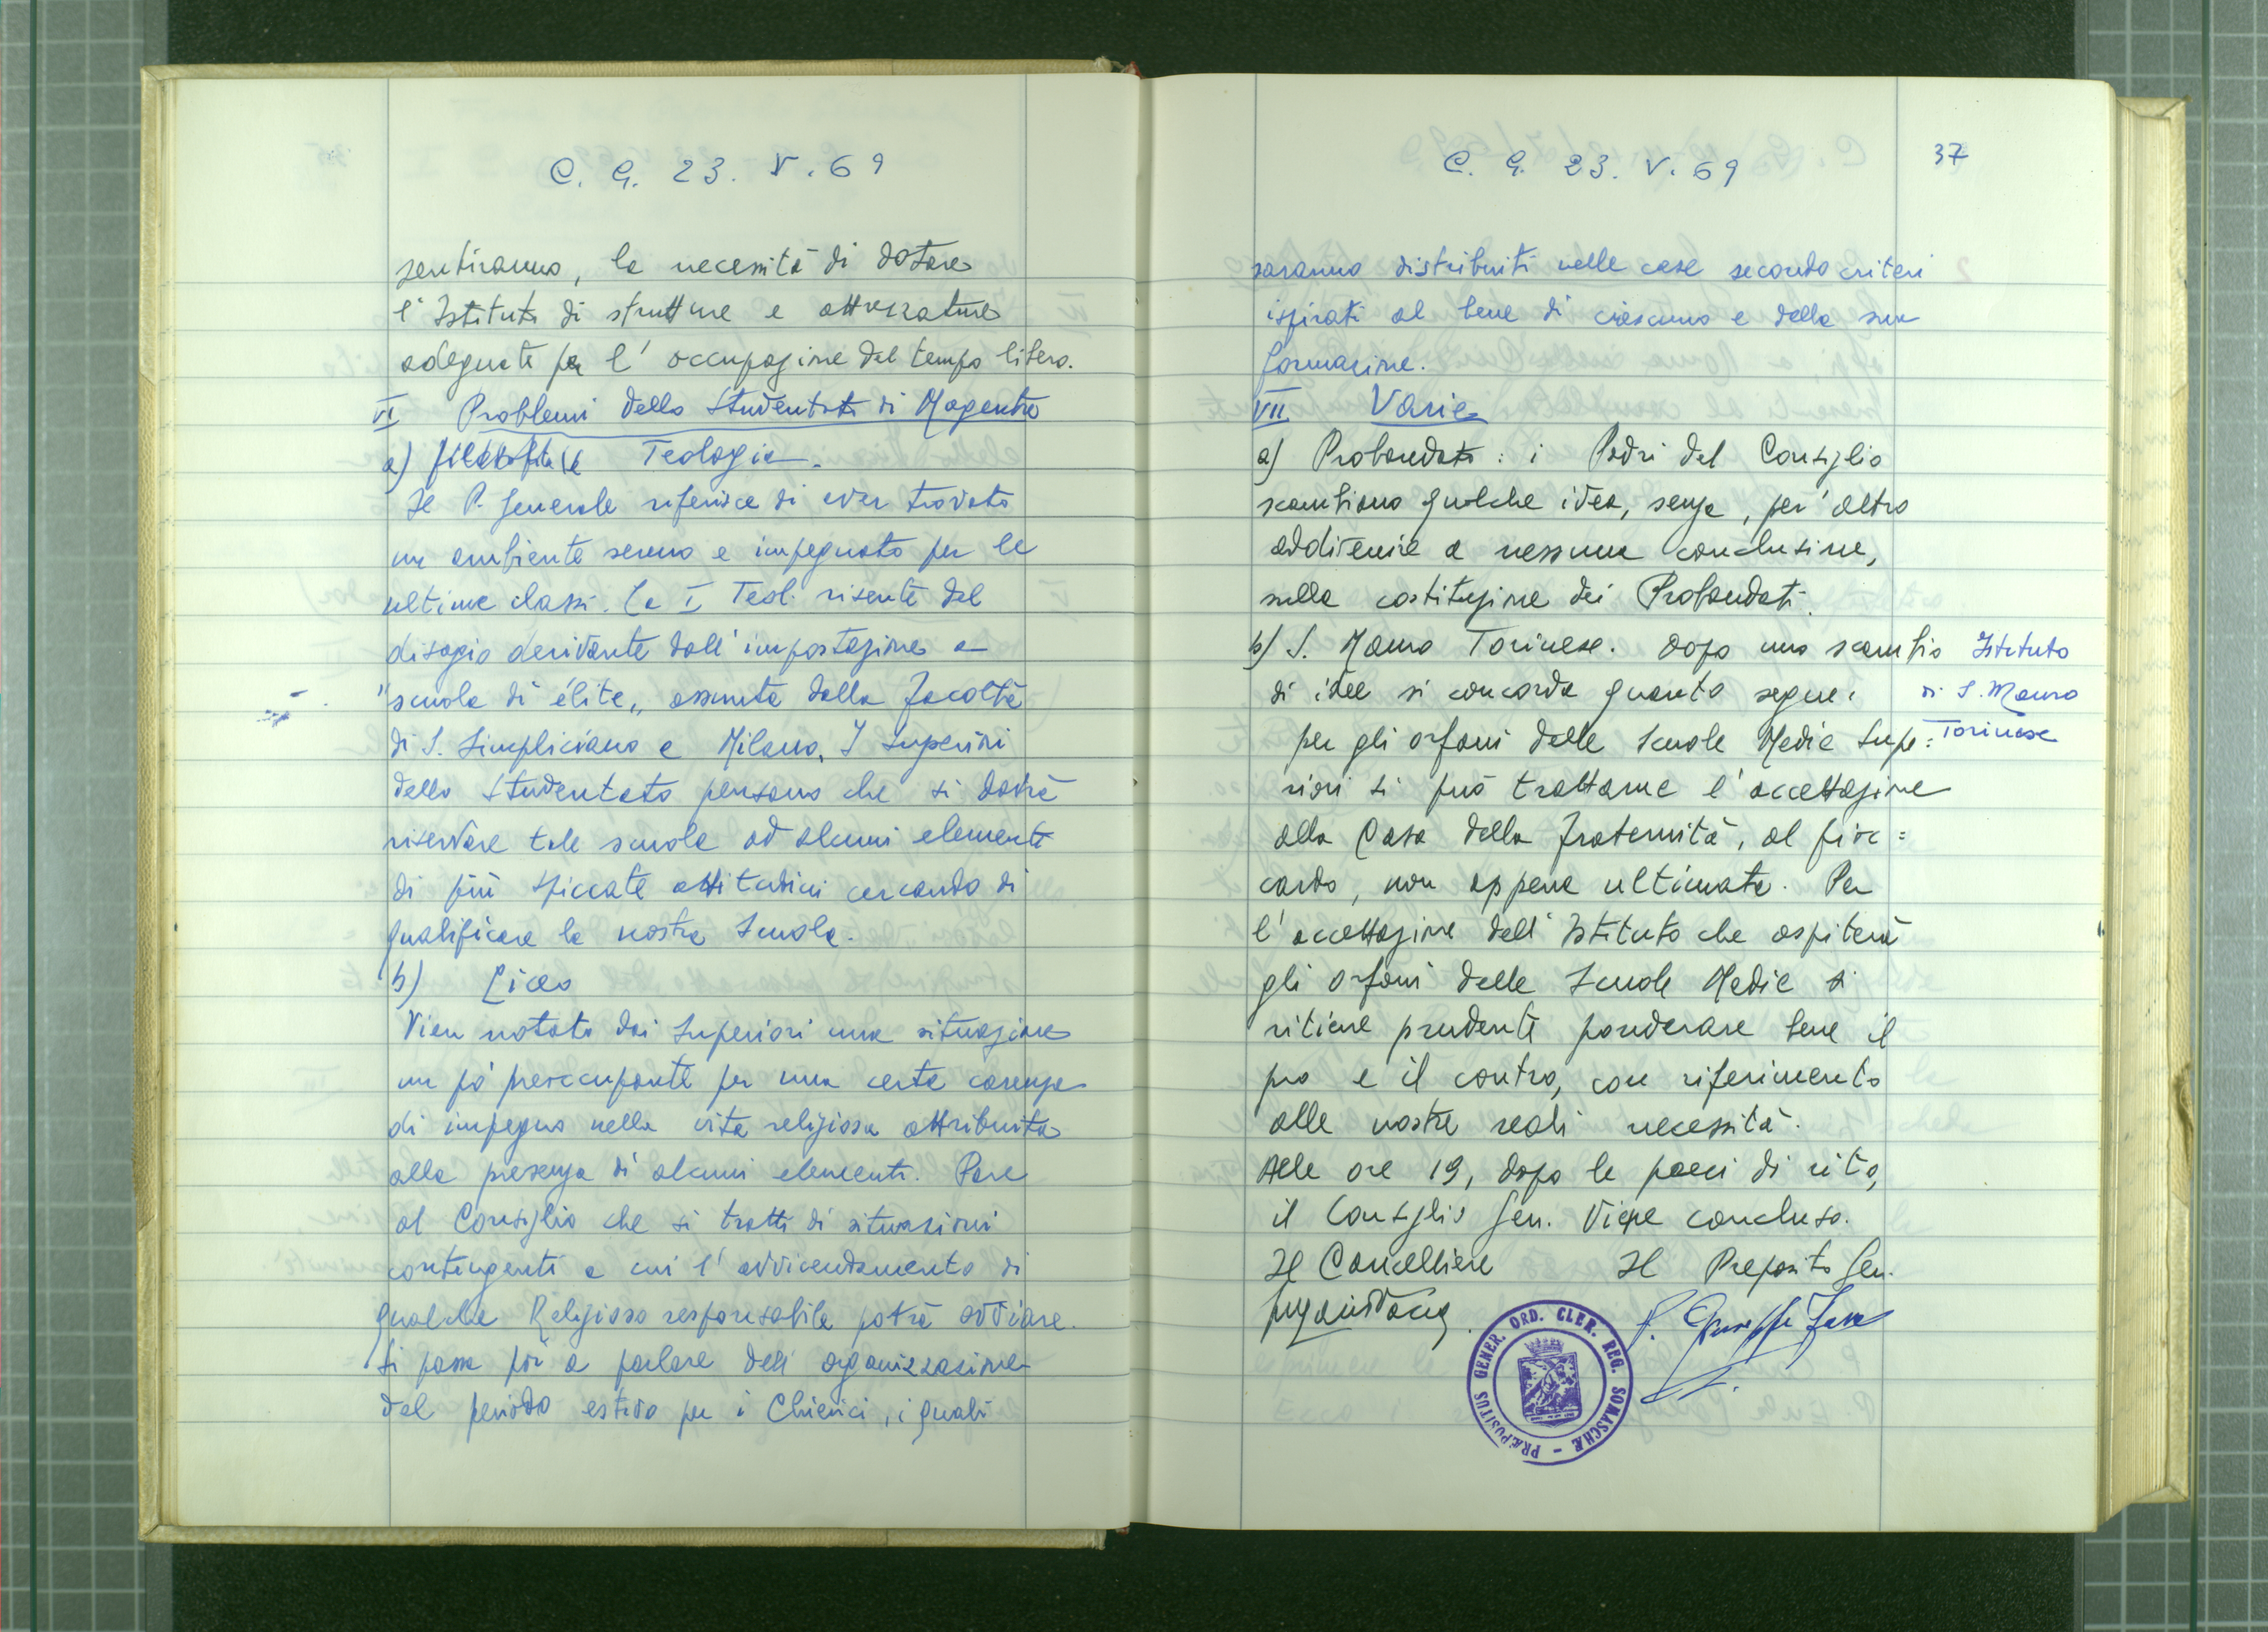 C. G. 23. V. 69
sentiranno, la necessità di dotare
l'Istituto di strutture e attrezzature
adeguate per l'occupazione del tempo libero.
VI Problemi dello Studentato di Magenta
a) Teologia.
Il P. Generale riferisce di aver trovato
un ambiente sereno e impegnato per le
ultime classi. La I Teol. risente del
disagio derivante dall'impostazione a
"scuola di élite„ assunta dalla Facoltà
di S. Simpliciano a Milano. I Superiori
dello Studentato pensano che si dovrà
riservare tale scuola ad alcuni elementi
di più spiccate attitudini cercando di
qualificare la nostra Scuola.
b) Liceo
Vien notata dai Superiori una situazione
un pò preoccupante per una certa carenza
di impegno nella vita religiosa attribuita
alla presenza di alcuni elementi. Pare
al Consiglio che si tratti di situazioni
contingenti a cui l'avvicendamento di
qualche Religioso responsabile potrà ovviare.
Si passa poi a parlare dell'organizzazione
del periodo estivo per i Chierici, i quali
C. G. 23. V. 69
37
saranno distribuiti nelle case secondo criteri
ispirati al bene di ciascuno e della sua
formazione.
VII Varie
a) Probandato: i Padri del Consiglio
scambiano qualche idea, senza, per altro
addivenire a nessuna conclusione,
sulla costituzione dei Probandati.
b) S. Mauro Torinese. Dopo uno scambio
di idee si concorda quanto segue:
per gli orfani delle Scuole Medie Supe=
riori si può trattarne l'accettazione
alla Casa della Fraternità, al Fioc=
cardo, non appena ultimata. Per
l'accettazione dell'Istituto che ospiterà
gli orfani delle Scuole Medie si
ritiene prudente ponderare bene il
pro e il contro, con riferimento
alle nostre reali necessità.
Alle ore 19, dopo le preci di rito,
il Consiglio Gen. viene concluso.
Istituto
di S. Mauro
Torinese
Il Cancelliere Il Preposito Gen.
P. Giuseppe Fava
PRÆPOSITUS GENER. ORD. CLER. REG. SOMASCHÆ